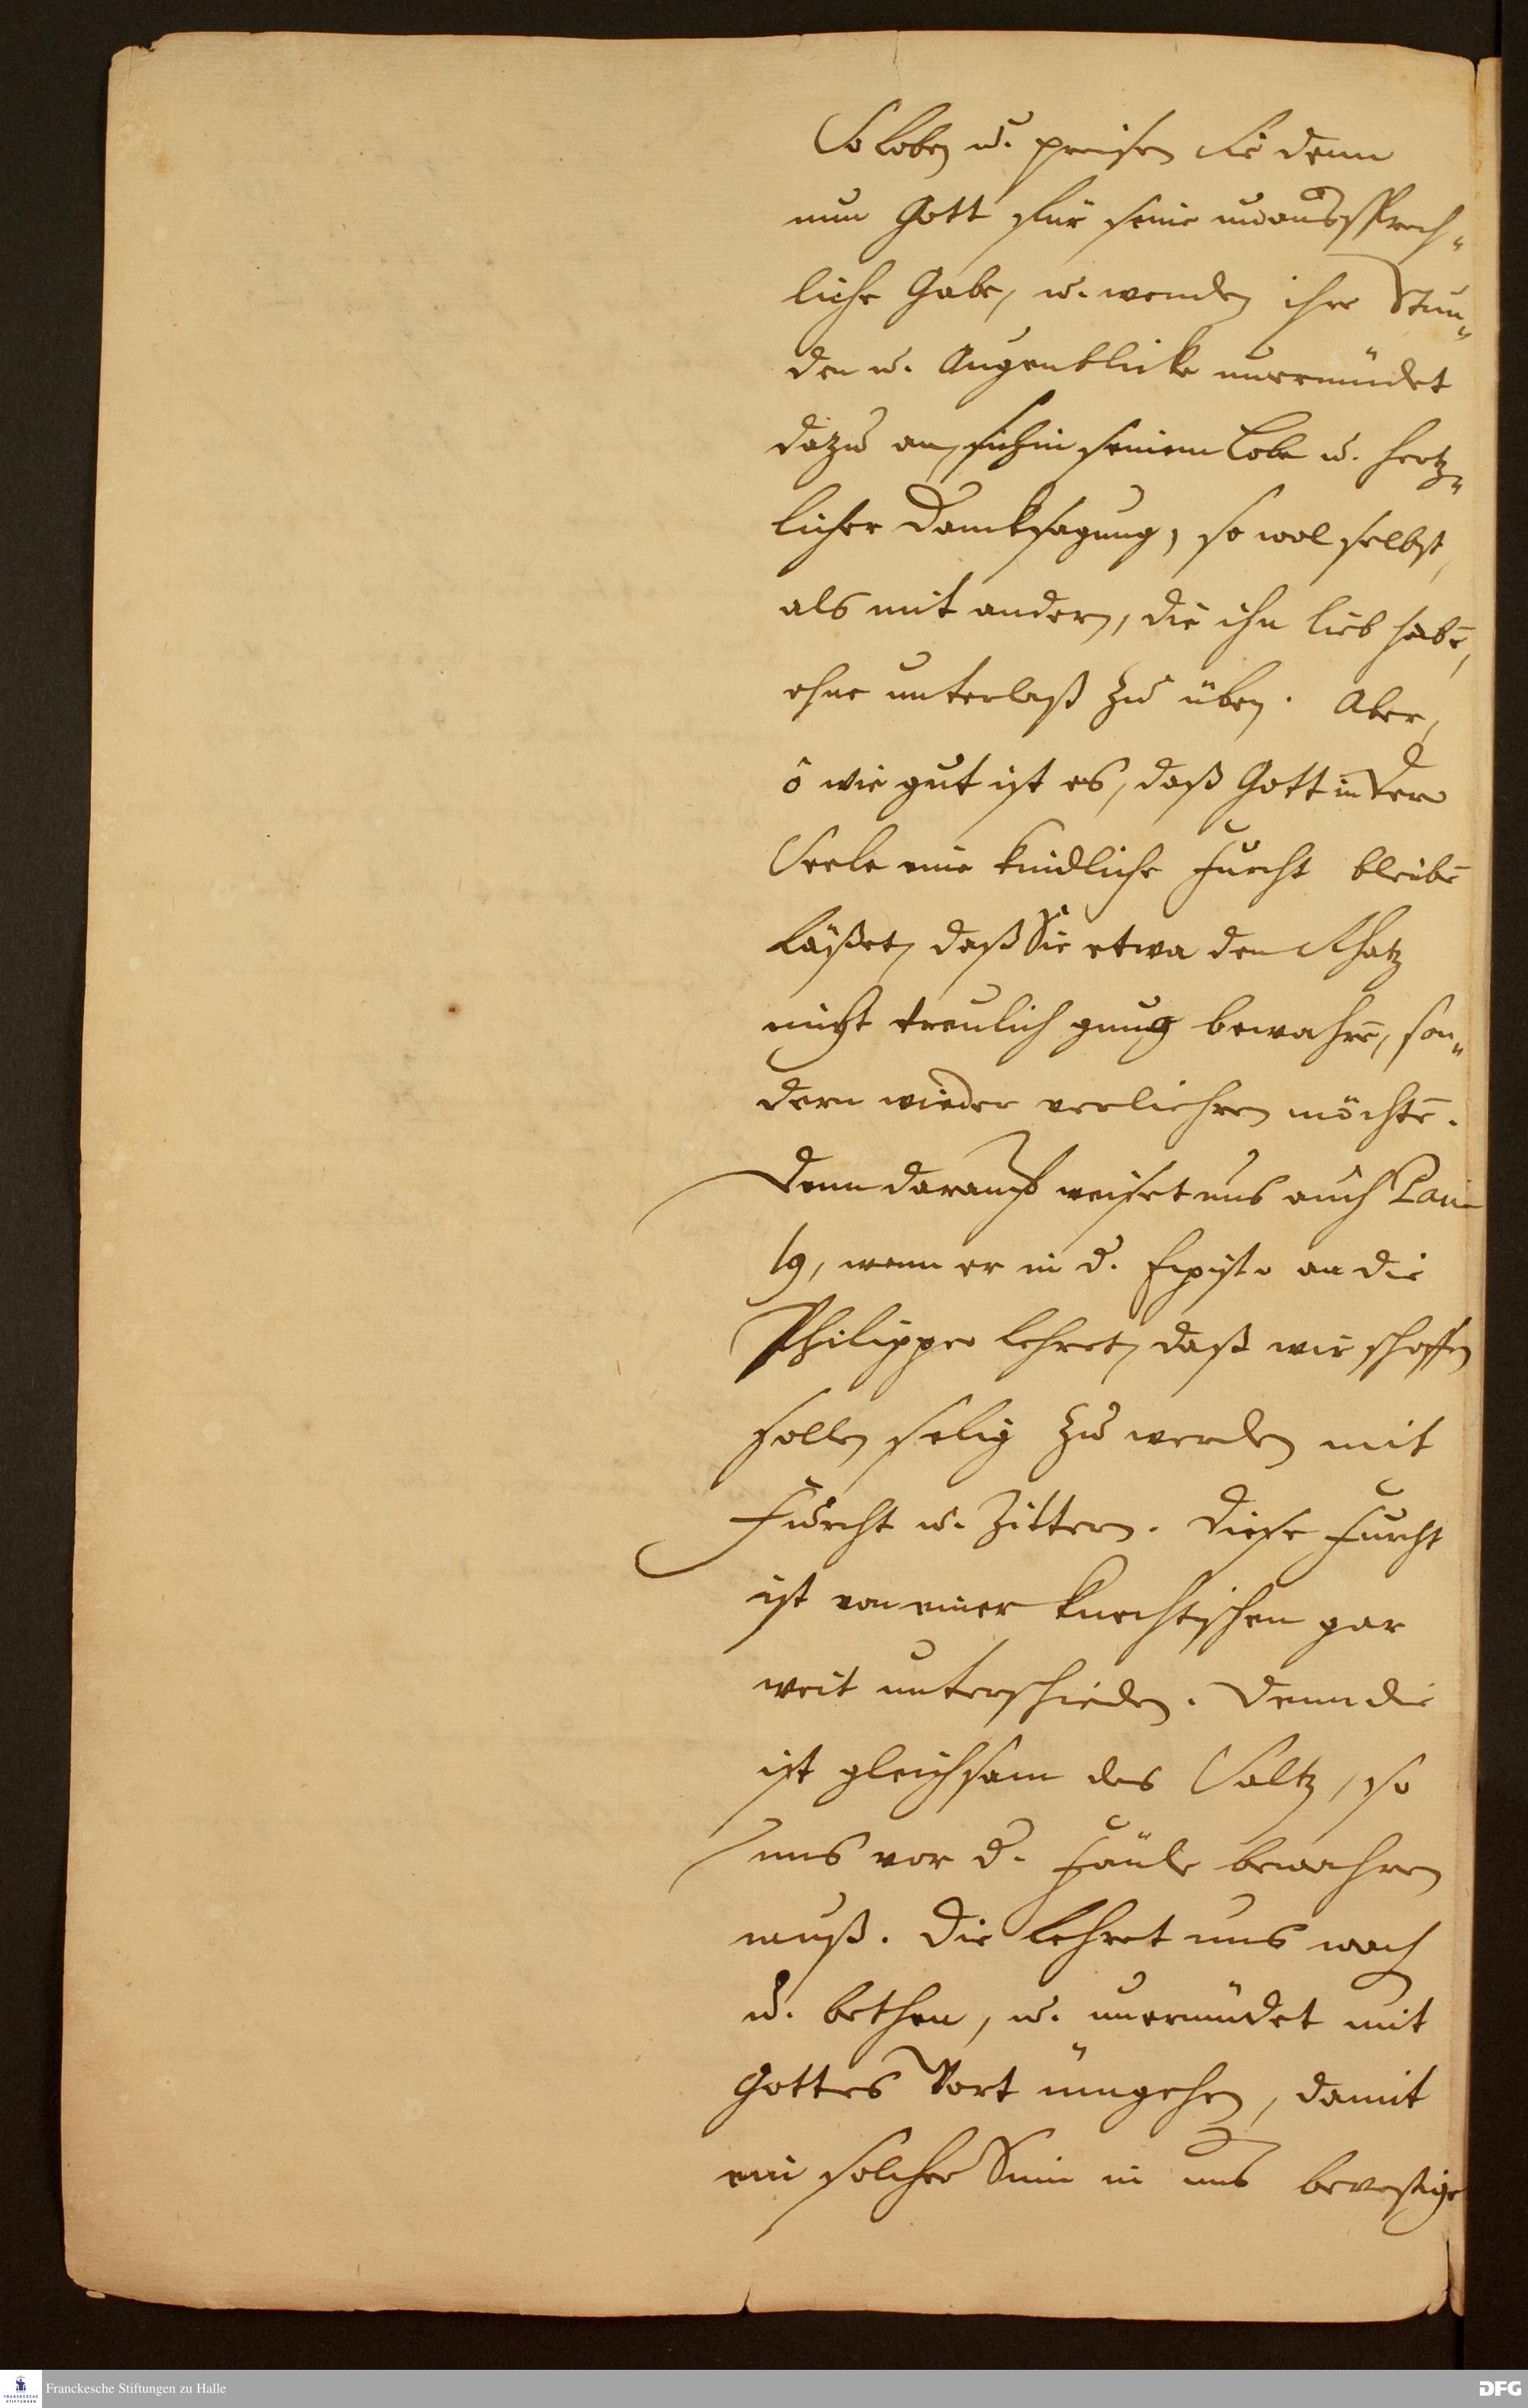 So loben u. preisen Sie denn
nun Gott für seine unaussprech„
liche Gabe, u. wenden ihre Stun„
den u. Augenblicke unermüdet
dazu an, sich in seinem Lobe u. hertz„
licher Dancksagung, so wol selbst,
als mit andern, die ihn lieb habē,
ohne unterlaß zu üben. Aber,
ô wie gut ist es, daß Gott in der
Seele eine kindliche Furcht bleibē
läßet, daß Sie etwa den Schatz
nicht treulich gnug bewahrē, son„
dern wieder verliehren möchtē.
Denn darauff weiset uns auch Pau„
lg, wenn er in d. Epist. an die
Philipper lehret, daß wir schaffen
sollen selig zu werden mit
Furcht u. Zittern. Diese Furcht
ist von einer knechtischen gar
weit unterschieden. Denn die
ist gleichsam das Saltz, so
uns vor d. Fäule bewahren
muß. Die lehret uns wach
u. bethen, u. unermüdet mit
Gottes Wort ümgehen, damit
ein solcher Sinn in uns bevestige
Franckesche Stiftungen zu Halle
DFG